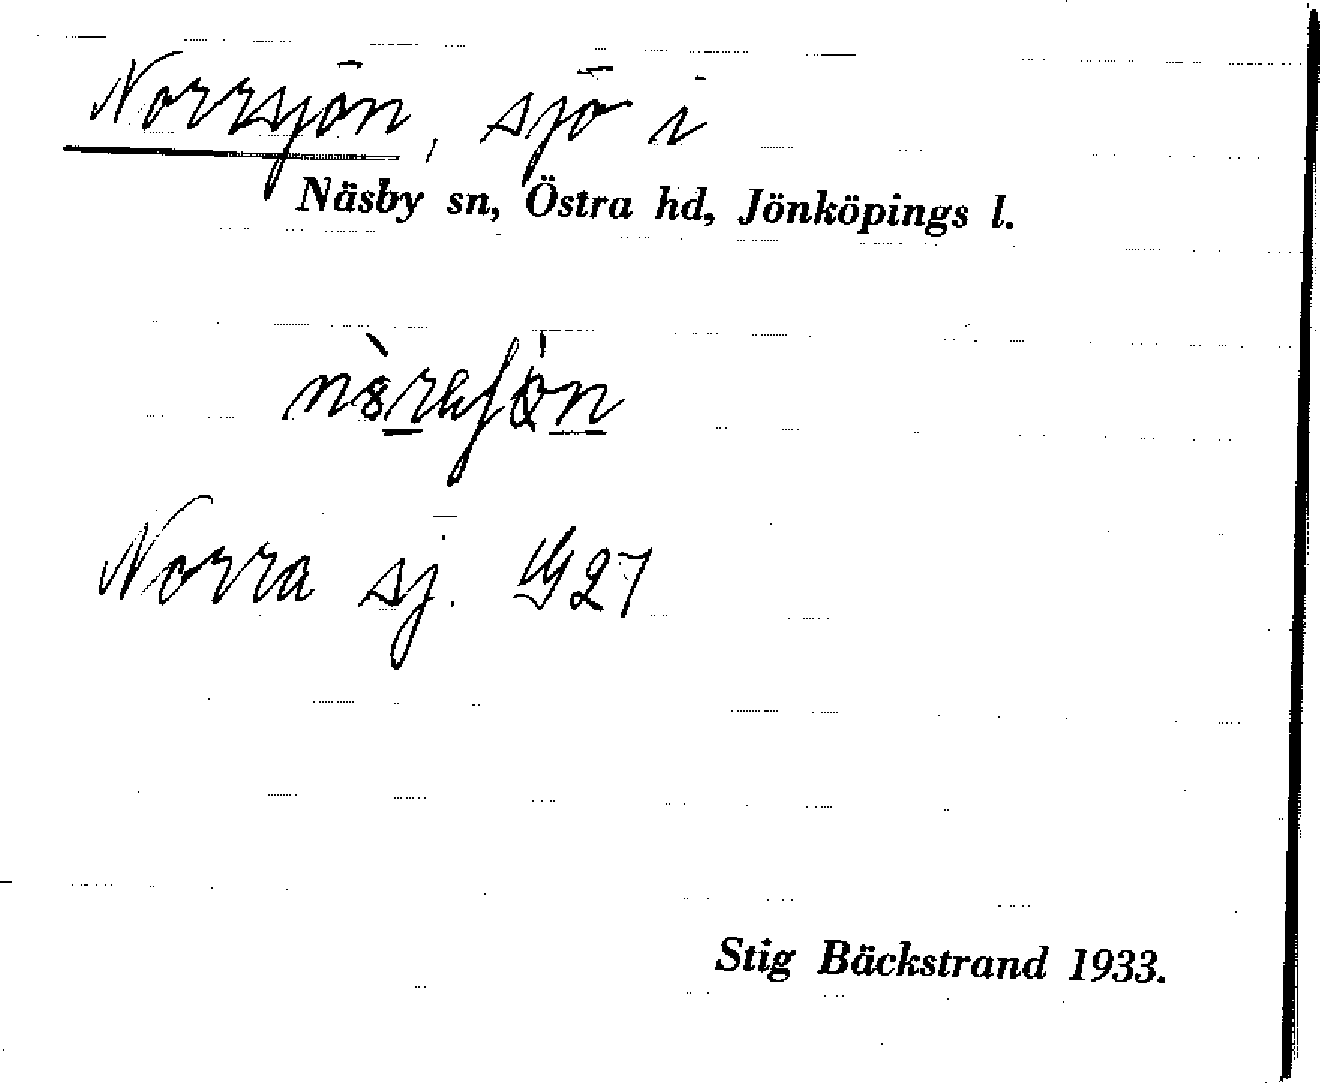 Norrsjön, sjö i
Näsby sn, Östra hd, Jönköpings l.
Norra sj. G27
Stig Bäckstrand 1933.